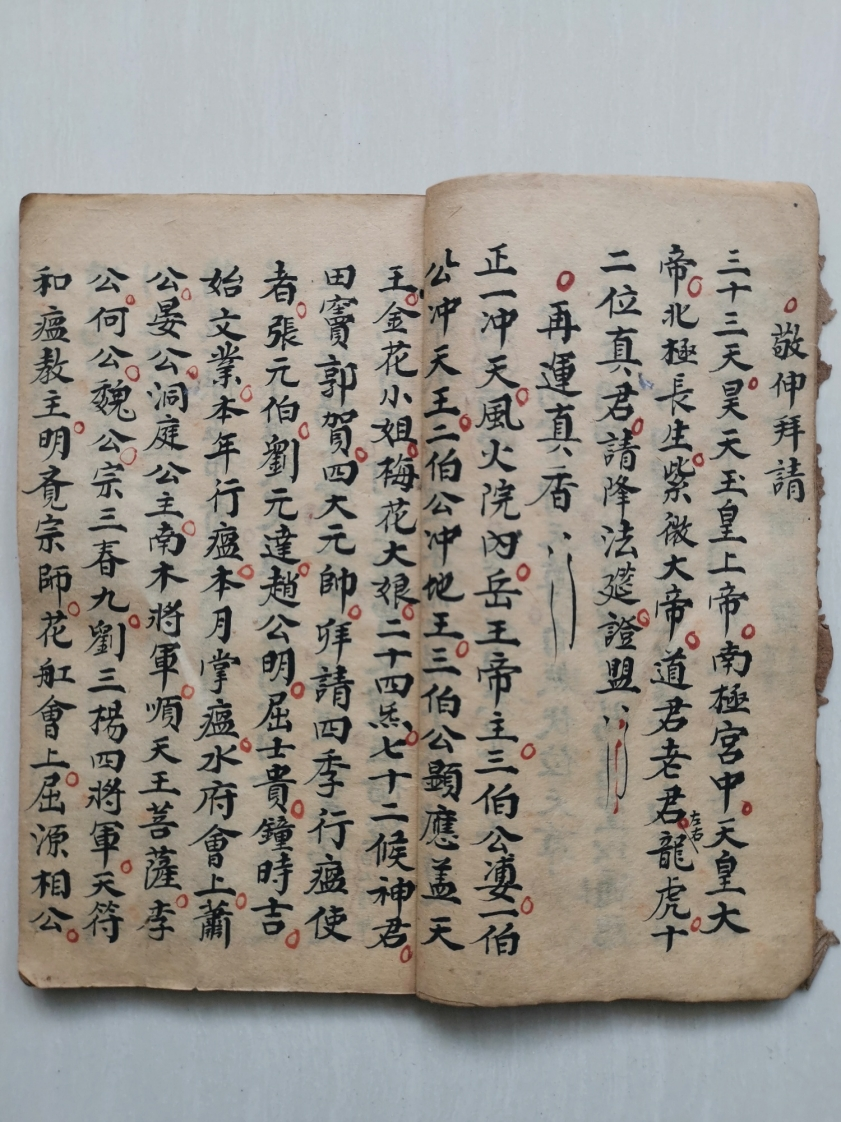 敬伸拜請
三十三天昊天玉皇上帝南極宮中天皇大
帝北極長生紫微大帝道君老君左右龍虎十
二位真君請降法筵證盟
再運真香
正一冲天風火院內岳王帝主三伯公婆一伯
公冲天王二伯公冲地王三伯公顯應盖天
王金花小姐梅花大娘二十四炁七十二候神君
田竇郭賀四大元帥拜請四季行瘟使
者張元伯劉元達趙公明屈士貴鐘時吉
始文業本年行瘟本月掌瘟水府會上蕭
公晏公洞庭公主南木將軍順天王菩薩李
公何公魏公宗三春九劉三楊四將軍天符
和瘟教主明覓宗師花舡會上屈源相公